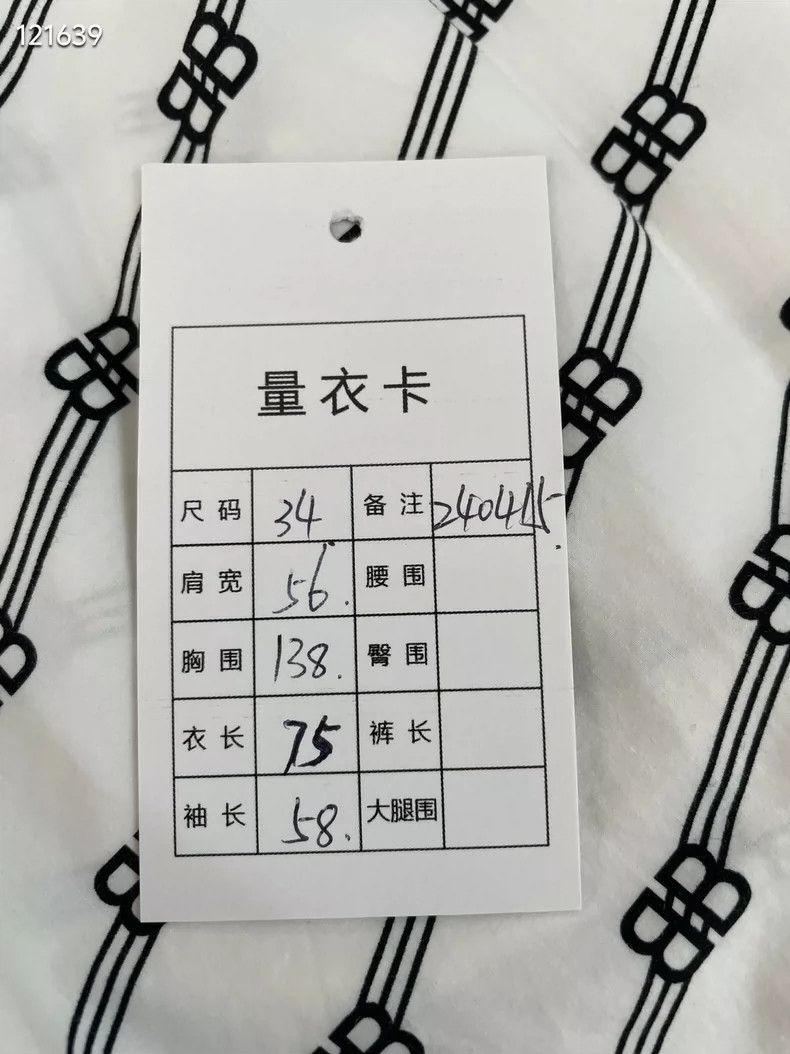 121639
量衣卡
尺码 34 备注 240415
肩宽 56. 腰围
胸围 138. 臀围
衣长 75 裤长
袖长 58. 大腿围